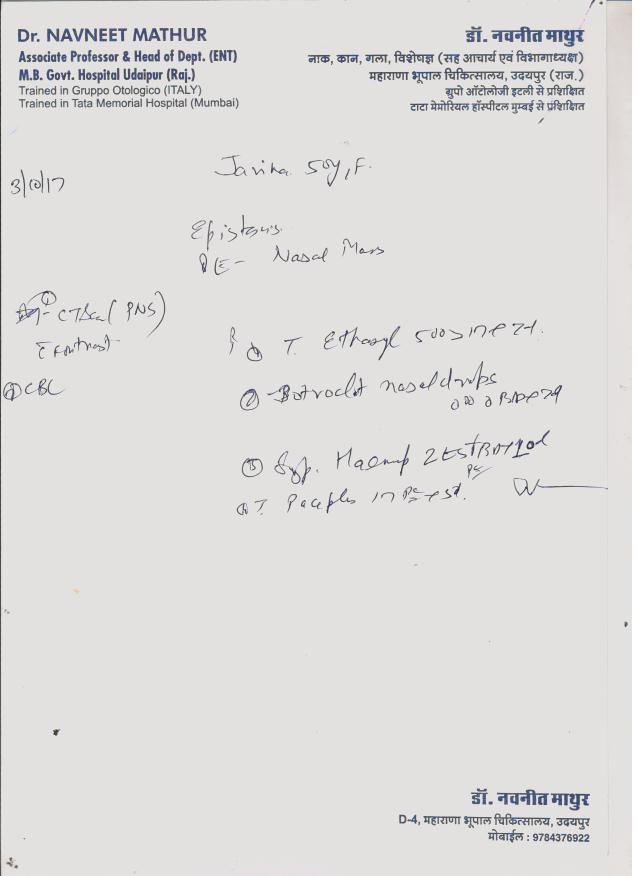 Dr. NAVNEET MATHUR
Associate Professor & Head of Dept. (ENT)
M.B. Govt. Hospital Udaipur (Raj.)
Trained in Gruppo Otologico (ITALY)
Trained in Tata Memorial Hospital (Mumbai)
डॉ. नवनीत माथुर
नाक, कान, गला, विशेषज्ञ (सह आचार्य एवं विभागाध्यक्ष)
महाराणा भूपाल चिकित्सालय, उदयपुर (राज.)
ग्रुपो ऑटोलोजी इटली से प्रशिक्षित
टाटा मेमोरियल हॉस्पीटल मुम्बई से प्रशिक्षित
50y, F.
3/10/17
Epistaxis
Nasal Mass
① CT Scan (PNS)
c̄ contrast
② CBC
① T. Ethasyl 500
② Botroclot nasal drops
③ Syp. Haemup 2
④ T.
डॉ. नवनीत माथुर
D-4, महाराणा भूपाल चिकित्सालय, उदयपुर
मोबाईल : 9784376922